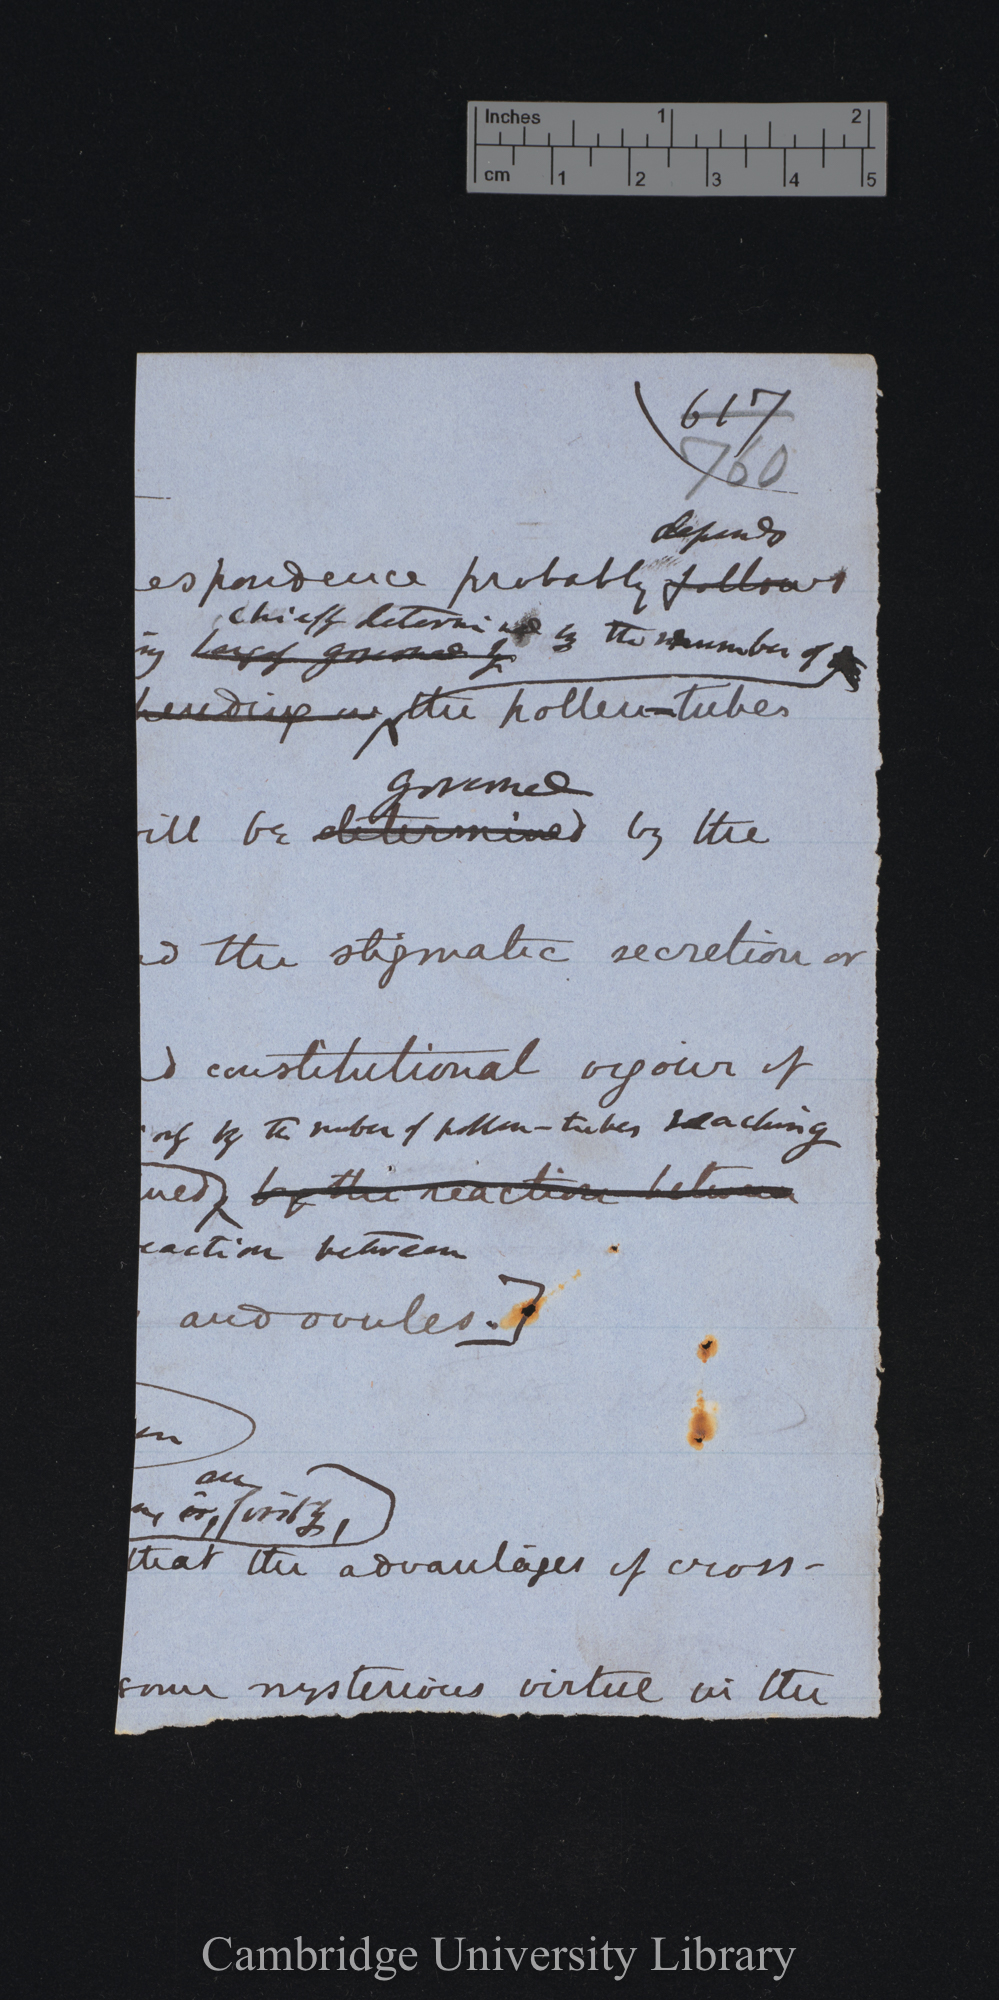 Inches 1 2
cm 1 2 3 4 5
617
760
depends
espondence probably follows
chiefly determined by the number of
ing largely governed by
pending on the pollen-tubes
governed
ill be determined by the
nd the stigmatic secretion or
d constitutional vigour of
by the number of pollen-tubes reaching
ined, by the reaction between
reaction between
and ovules.]
an
or,
that the advantages of cross-
some mysterious virtue in the
Cambridge University Library